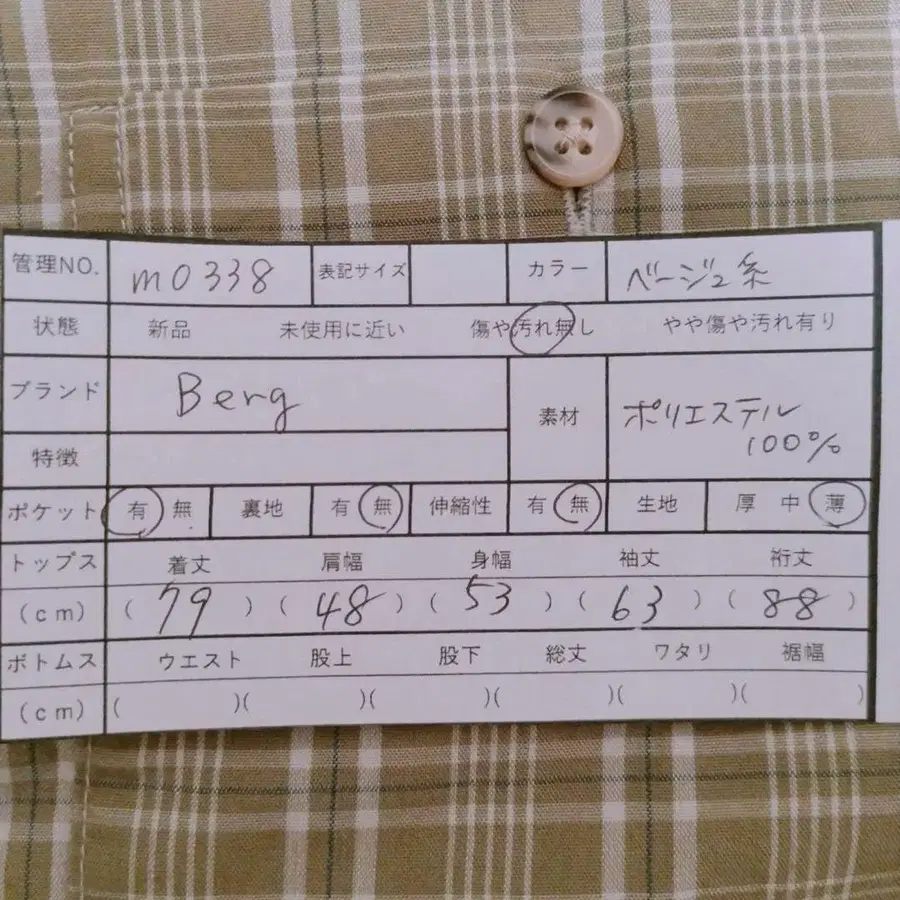 管理NO. m0338 表記サイズ カラー ベージュ系
状態 新品 未使用に近い 傷や汚れ無し やや傷や汚れ有り
ブランド Berg 素材 ポリエステル
100%
特徴
ポケット 有 無 裏地 有 無 伸縮性 有 無 生地 厚 中 薄
トップス 着丈 肩幅 身幅 袖丈 裄丈
(cm) (79) (48) (53) (63) (88)
ボトムス ウエスト 股上 股下 総丈 ワタリ 裾幅
(cm) ( )( )( )( )( )( )